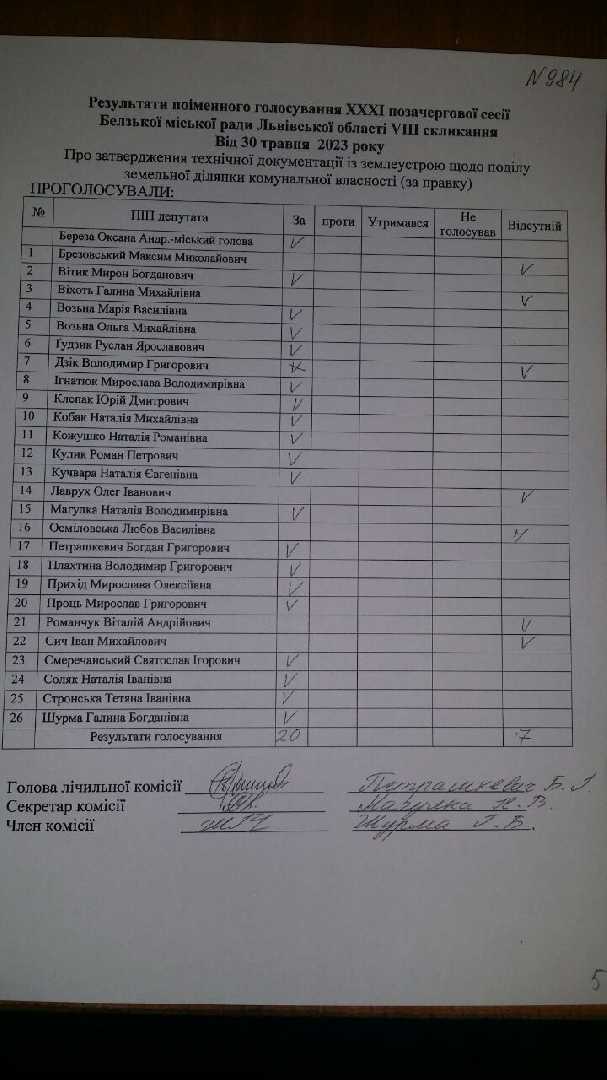 №984
Результати поіменного голосування XXXI позачергової сесії
Белзької міської ради Львівської області VIII скликання
Від 30 травня 2023 року
Про затвердження технічної документації із землеустрою щодо поділу
земельної ділянки комунальної власності (за правку)
ПРОГОЛОСУВАЛИ:
№ ПІП депутата За проти Утримався Не голосував Відсутній
Береза Оксана Андр.-міський голова V
1 Брезовський Максим Миколайович V
2 Вітик Мирон Богданович V
3 Віхоть Галина Михайлівна V
4 Возьна Марія Василівна V
5 Возьна Ольга Михайлівна V
6 Гудзик Руслан Ярославович V
7 Дзік Володимир Григорович V
8 Ігнатюк Мирослава Володимирівна V
9 Клепак Юрій Дмитрович V
10 Кобак Наталія Михайлівна V
11 Кожушко Наталія Романівна V
12 Кулик Роман Петрович V
13 Кучвара Наталія Євгенівна V
14 Лаврух Олег Іванович V
15 Магулка Наталія Володимирівна V
16 Осміловська Любов Василівна V
17 Петрашкевич Богдан Григорович V
18 Плахтина Володимир Григорович V
19 Прихід Мирослава Олексіївна V
20 Проць Мирослав Григорович V
21 Романчук Віталій Андрійович V
22 Сич Іван Михайлович V
23 Смеречанський Святослав Ігорович V
24 Соляк Наталія Іванівна V
25 Стронська Тетяна Іванівна V
26 Шурма Галина Богданівна V
Результати голосування 20 7
Голова лічильної комісії Петрашкевич Б. Г.
Секретар комісії Магулка Н. В.
Член комісії Шурма Г. Б.
5